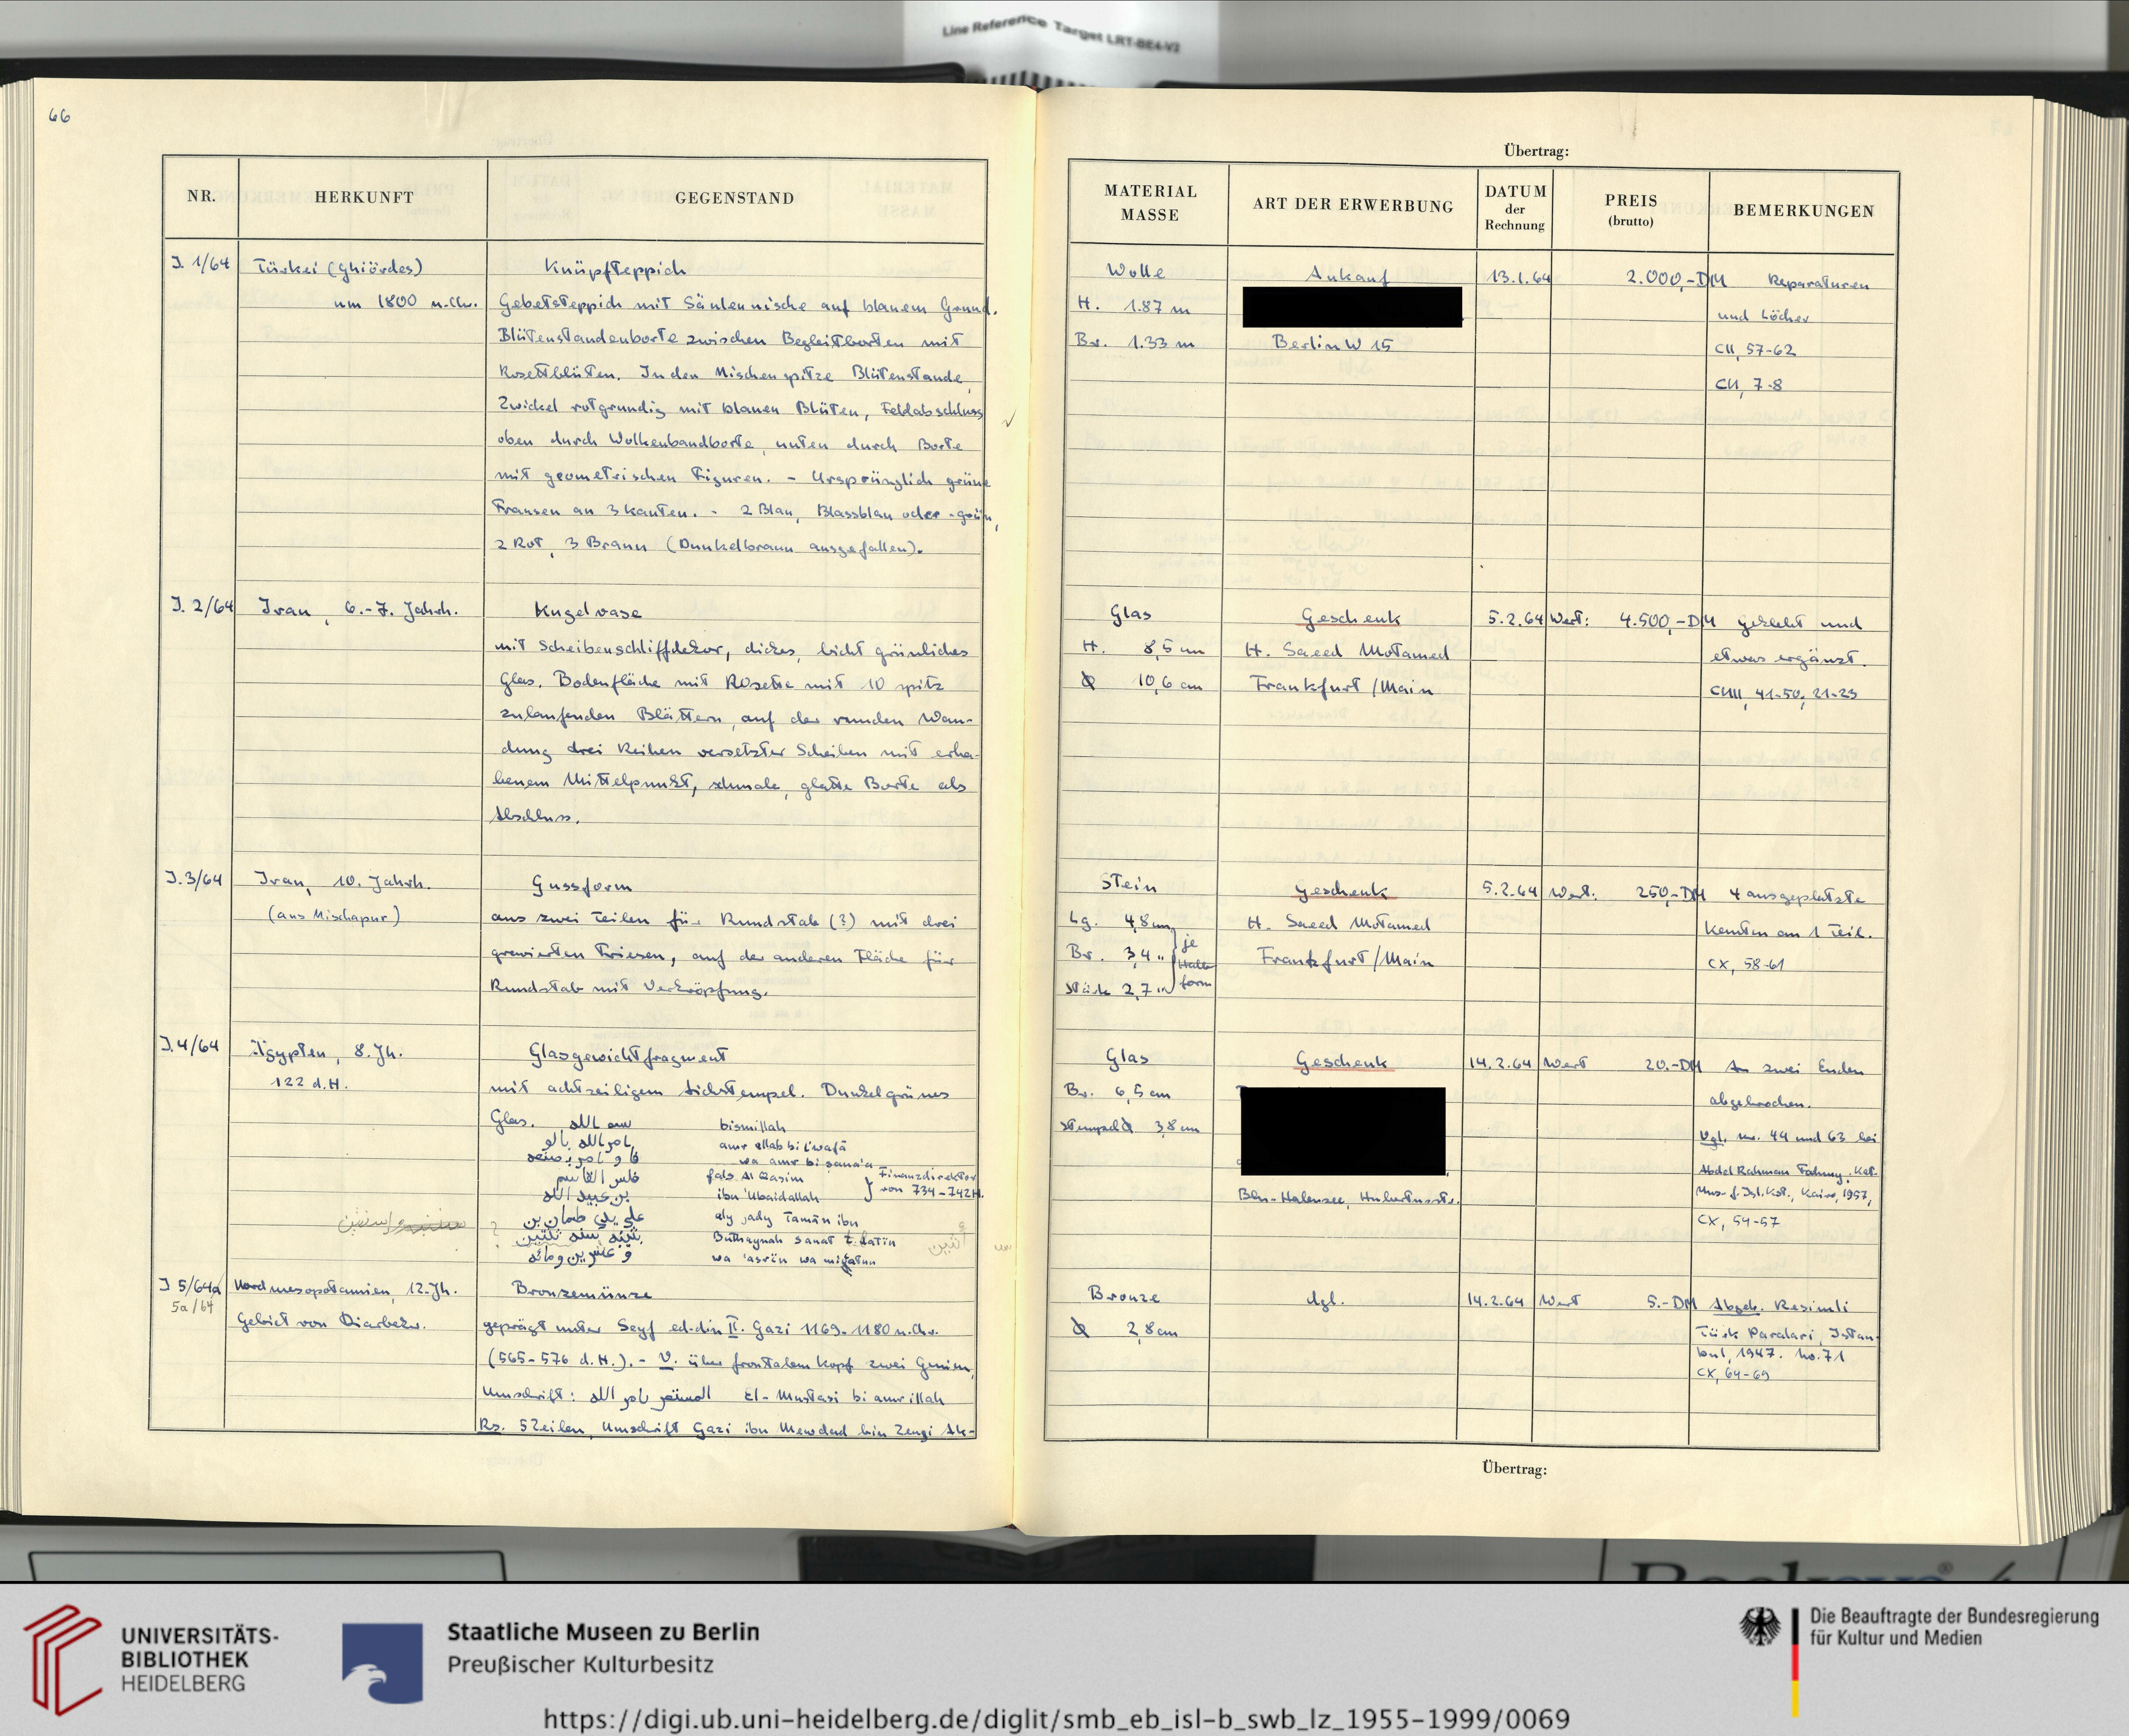 Line Reference Target LRT-BE4-V2
66
NR.
HERKUNFT
GEGENSTAND
J. 1/64
Türkei (Ghiördes)
um 1800 n.Chr.
Knüpfteppich
Gebetsteppich mit Säulennische auf blauem Grund.
Blütenstaudenborte zwischen Begleitborten mit
Rosettblüten. In den Nischenspitze Blütenstaude,
Zwickel rotgrundig mit blauen Blüten, Feldabschluss
oben durch Wolkenbandborte, unten durch Borte
mit geometrischen Figuren. - Ursprünglich grüne
Fransen an 3 Kanten. - 2 Blau, Blassblau oder -grün,
2 Rot, 3 Braun (Dunkelbraun ausgefallen).
J. 2/64
Iran, 6.-7. Jahrh.
Kugelvase
mit Scheibenschliffdekor, dickes, licht grünliches
Glas. Bodenfläche mit Rosette mit 10 spitz
zulaufenden Blättern, auf der runden Wan-
dung drei Reihen versetzter Scheiben mit erha-
benem Mittelpunkt, schmale, glatte Borte als
Abschluss.
J. 3/64
Iran, 10. Jahrh.
(aus Nischapur)
Gussform
aus zwei Teilen für Rundstab (?) mit drei
gravierten Friesen, auf der anderen Fläche für
Rundstab mit Verkröpfung.
J. 4/64
Ägypten, 8. Jh.
122 d.H.
Glasgewichtfragment
mit achtzeiligem Lichstempel. Dunkelgrünes
Glas. بسم الله bismillah
امر الله بالو amr allah bi l'wafā
فا و امر بصنعه wa amr bi sana'a
فلس القاسم fals Al Qasim
بن عبيد الله ibn 'Ubaidallah
Finanzdirektor
von 734-742 n.
على يدي طمان بن aly jady Tamān ibn
بثينه سنه ثلثين Buthaynah sanat t.latīn
و عشرين ومائه wa 'asrīn wa mi'atun
اثنين
J 5/64a
5a/64
Nordmesopotamien, 12. Jh.
Gebiet von Diarbekr.
Bronzemünze
geprägt unter Seyf ed-din II. Gazi 1169-1180 n.Chr.
(565-576 d. H.). - V. über frontalem Kopf zwei Genien,
Umschrift: المستضئ بامر الله El-Mustasi bi amrillah
Rs. 5 Zeilen, Umschrift Gazi ibn Mewdud bin Zengi Ak-
Übertrag:
MATERIAL
MASSE
ART DER ERWERBUNG
DATUM
der
Rechnung
PREIS
(brutto)
BEMERKUNGEN
Wolle
H. 1.87 m
Br. 1.33 m
Ankauf
Berlin W 15
13.1.64
2.000,-DM
Reparaturen
und Löcher
CII, 57-62
CII, 7-8
Glas
H. 8,5 cm
Ø 10,6 cm
Geschenk
H. Saeed Motamed
Frankfurt/Main
5.2.64
Wert: 4.500,-DM
geklebt und
etwas ergänzt.
CVIII, 41-50, 21-23
Stein
Lg. 4,8 cm
Br. 3,4 "
Stärke 2,7 "
je
Halb
form
Geschenk
H. Saeed Motamed
Frankfurt/Main
5.2.64
Wert. 250,-DM
4 ausgeplatzte
Kanten an 1 Teil.
CX, 58-61
Glas
Br. 6,5 cm
Stempel Ø 3,8 cm
Geschenk
Bln-Halensee, Hubertusstr.
14.2.64
Wert 20.-DM
An zwei Enden
abgebrochen.
Vgl. No. 44 und 63 bei
Abdel Rahman Fahmy, Kat.
Mus. f. Isl. Kst., Kairo, 1957,
CX, 54-57
Bronze
Ø 2,8 cm
dgl.
14.2.64
Wert 5.-DM
Abgeb. Resimli
Türk Paralari, Istan-
bul, 1947. No. 71
CX, 64-69
Übertrag:
UNIVERSITÄTS-
BIBLIOTHEK
HEIDELBERG
Staatliche Museen zu Berlin
Preußischer Kulturbesitz
Die Beauftragte der Bundesregierung
für Kultur und Medien
https://digi.ub.uni-heidelberg.de/diglit/smb_eb_isl-b_swb_lz_1955-1999/0069